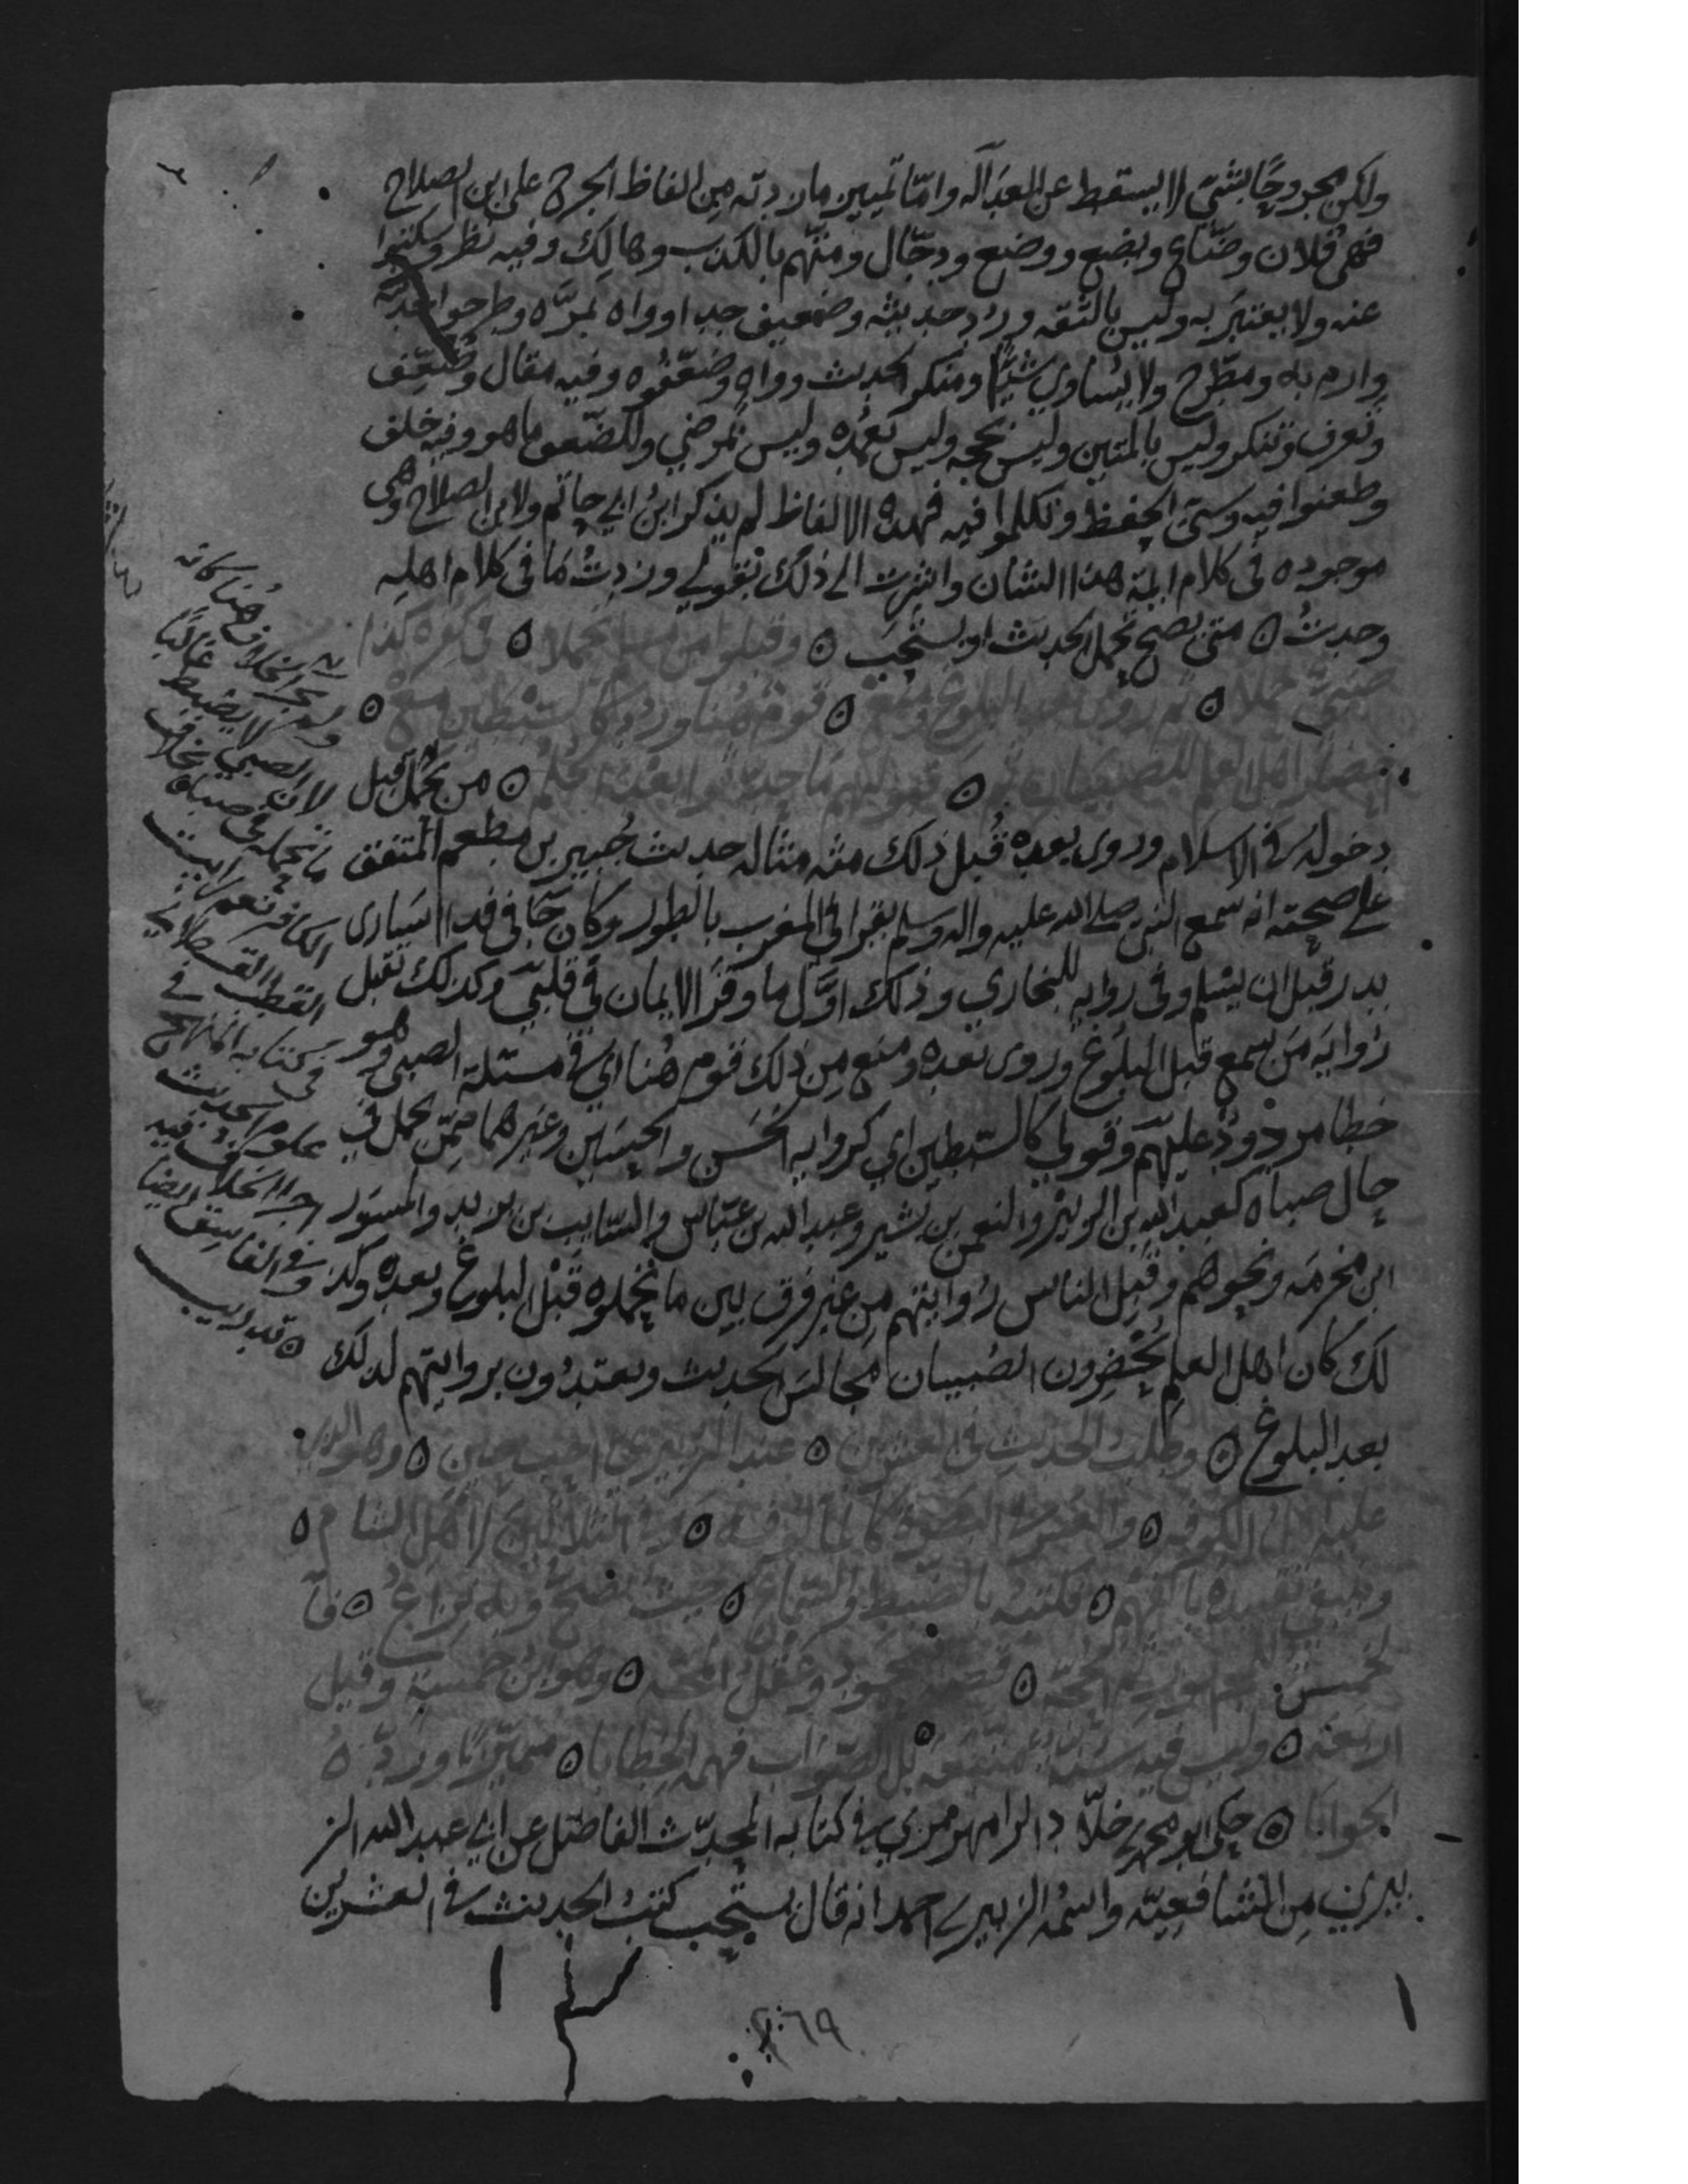 ولكن مجروحا بشئ لا يسقط عن العدالة واما تمييز ما زدته من الفاظ الجرح على ابن الصلاح
فهى فلان وضاع ويضع ووضع ودجال ومتهم بالكذب وهالك وفيه نظر وسكتوا
عنه ولا يعتبر به وليس بالثقه ورد حديثه وضعيف جدا وواه بمره وطرحوا حديثه
وارم به ومطرح ولا يساوي شيئا ومنكر الحديث وواه وضعفوه وفيه مقال وضعف
وتعرف وتنكر وليس بالمتين وليس بحجه وليس بعمده وليس بمرضي وللضعف ما هو وفيه خلف
وطعنوا فيه وسئ الحفظ وتكلموا فيه فهذه الالفاظ لم يذكر ابن ابي حاتم ولا ابن الصلاح وهى
موجوده في كلام ايمة هذا الشان واشرت الى ذلك بقولي وزدت ما في كلام اهله
وجدت ۞ متى يصح تحمل الحديث او يستحب ۞ وقبلوا من مسلم تحملا ۞ في كفره كذا
صبي حملا ۞ ثم روى بعد البلوغ ومنع ۞ قوم هنا ورد كالسبطين مع ۞
احضار اهل العلم للصبيان ثم ۞ قبولهم ما حدثوا بعد الحلم ۞ من تحمل قبل
دخوله في الاسلام وروى بعده قبل ذلك منه مثاله حديث جبير بن مطعم المتفق
على صحته انه سمع النبي صلى الله عليه واله وسلم يقرا في المغرب بالطور وكان جا في فدا اسارى
بدر قبل ان يسلم وفي روايه للبخاري وذلك اول ما وقر الايمان في قلبي وكذلك تقبل
روايه من سمع قبل البلوغ وروى بعده ومنع من ذلك قوم هنا اي في مسئلة الصبي وهو
خطا مردود عليهم وقولي كالسبطين اي كروايه الحسن والحسين وغيرهما ممن تحمل في
حال صباه كعبد الله بن الزبير والنعمن بن بشير وعبد الله بن عباس والسايب بن يزيد والمسور
ابن مخرمه ونحوهم وقبل الناس روايتهم من غير فرق بين ما تحملوه قبل البلوغ وبعده وكذ
لك كان اهل العلم يحضرون الصبيان مجالس الحديث ويعتدون بروايتهم لذلك
بعد البلوغ ۞ وطلب الحديث في العشرين ۞ عند الزبيري احب حين ۞ وهو الذي
عليه اهل الكوفه ۞ والعشر في البصرة كالمالوفه ۞ وفي الثلاثين لاهل الشام ۞
وينبغي تقييده بالفهم ۞ فكتبه بالضبط والسماع ۞ حيث يصح وبه نزاع ۞ فال
خمس للجمهور ثم الحجه ۞ قصة محمود وعقل المجه ۞ وهو ابن خمسة وقيل
اربعة ۞ وليس فيه سنة متبعه بل الصواب فهمه الخطابا ۞ مميزا ورده
الجوابا ۞ حكى ابو محمد بن خلاد الرامهرمزي في كتابه المحدث الفاصل عن ابي عبد الله الز
بيري من الشافعيه واسمه الزبير بن احمد انه قال يستحب كتب الحديث في العشرين
ولم يجر الخلاف هنا كانه
لان الصبي لا يضبط غالبا
ما تحمله في صباه بخلاف
الكافر نعم رايت
القطب القسطلاني
في كتابه المنهج في
علوم الحديث
اجرا الخلاف فيه
وفي الفاسق ايضا
۞ تدريب
٢٦٩